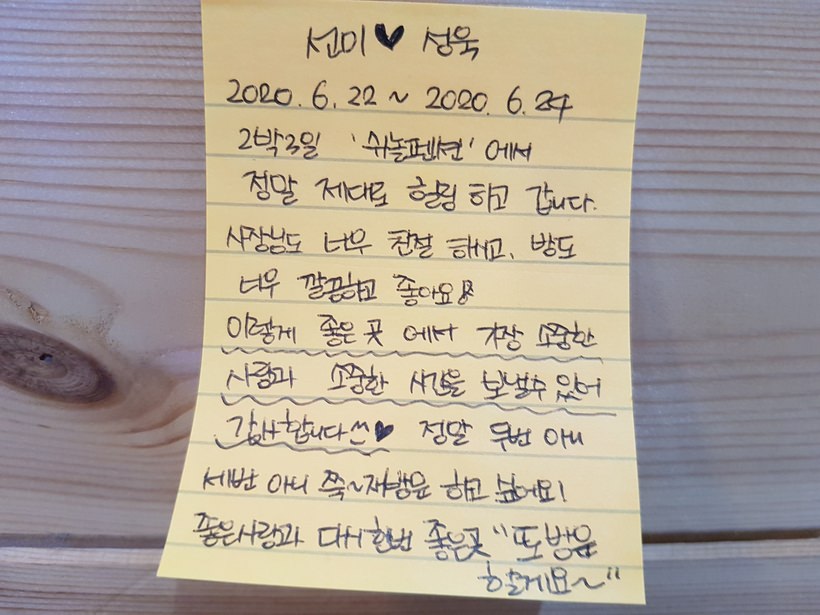 선미♥성욱
2020.6.22~2020.6.24
2박3일 '쉬놀펜션'에서
정말 제대로 힐링 하고 갑니다.
사장님도 너무 친절 하시고, 방도
너무 깔끔하고 좋아요!
이렇게 좋은 곳 에서 가장 소중한
사람과 소중한 시간을 보낼수 있어
감사합니다^^♥ 정말 두번 아니
세번 아니 쭉~재방문 하고 싶어요!
좋은사람과 다시한번 좋은곳 "또 방문
할게요~"